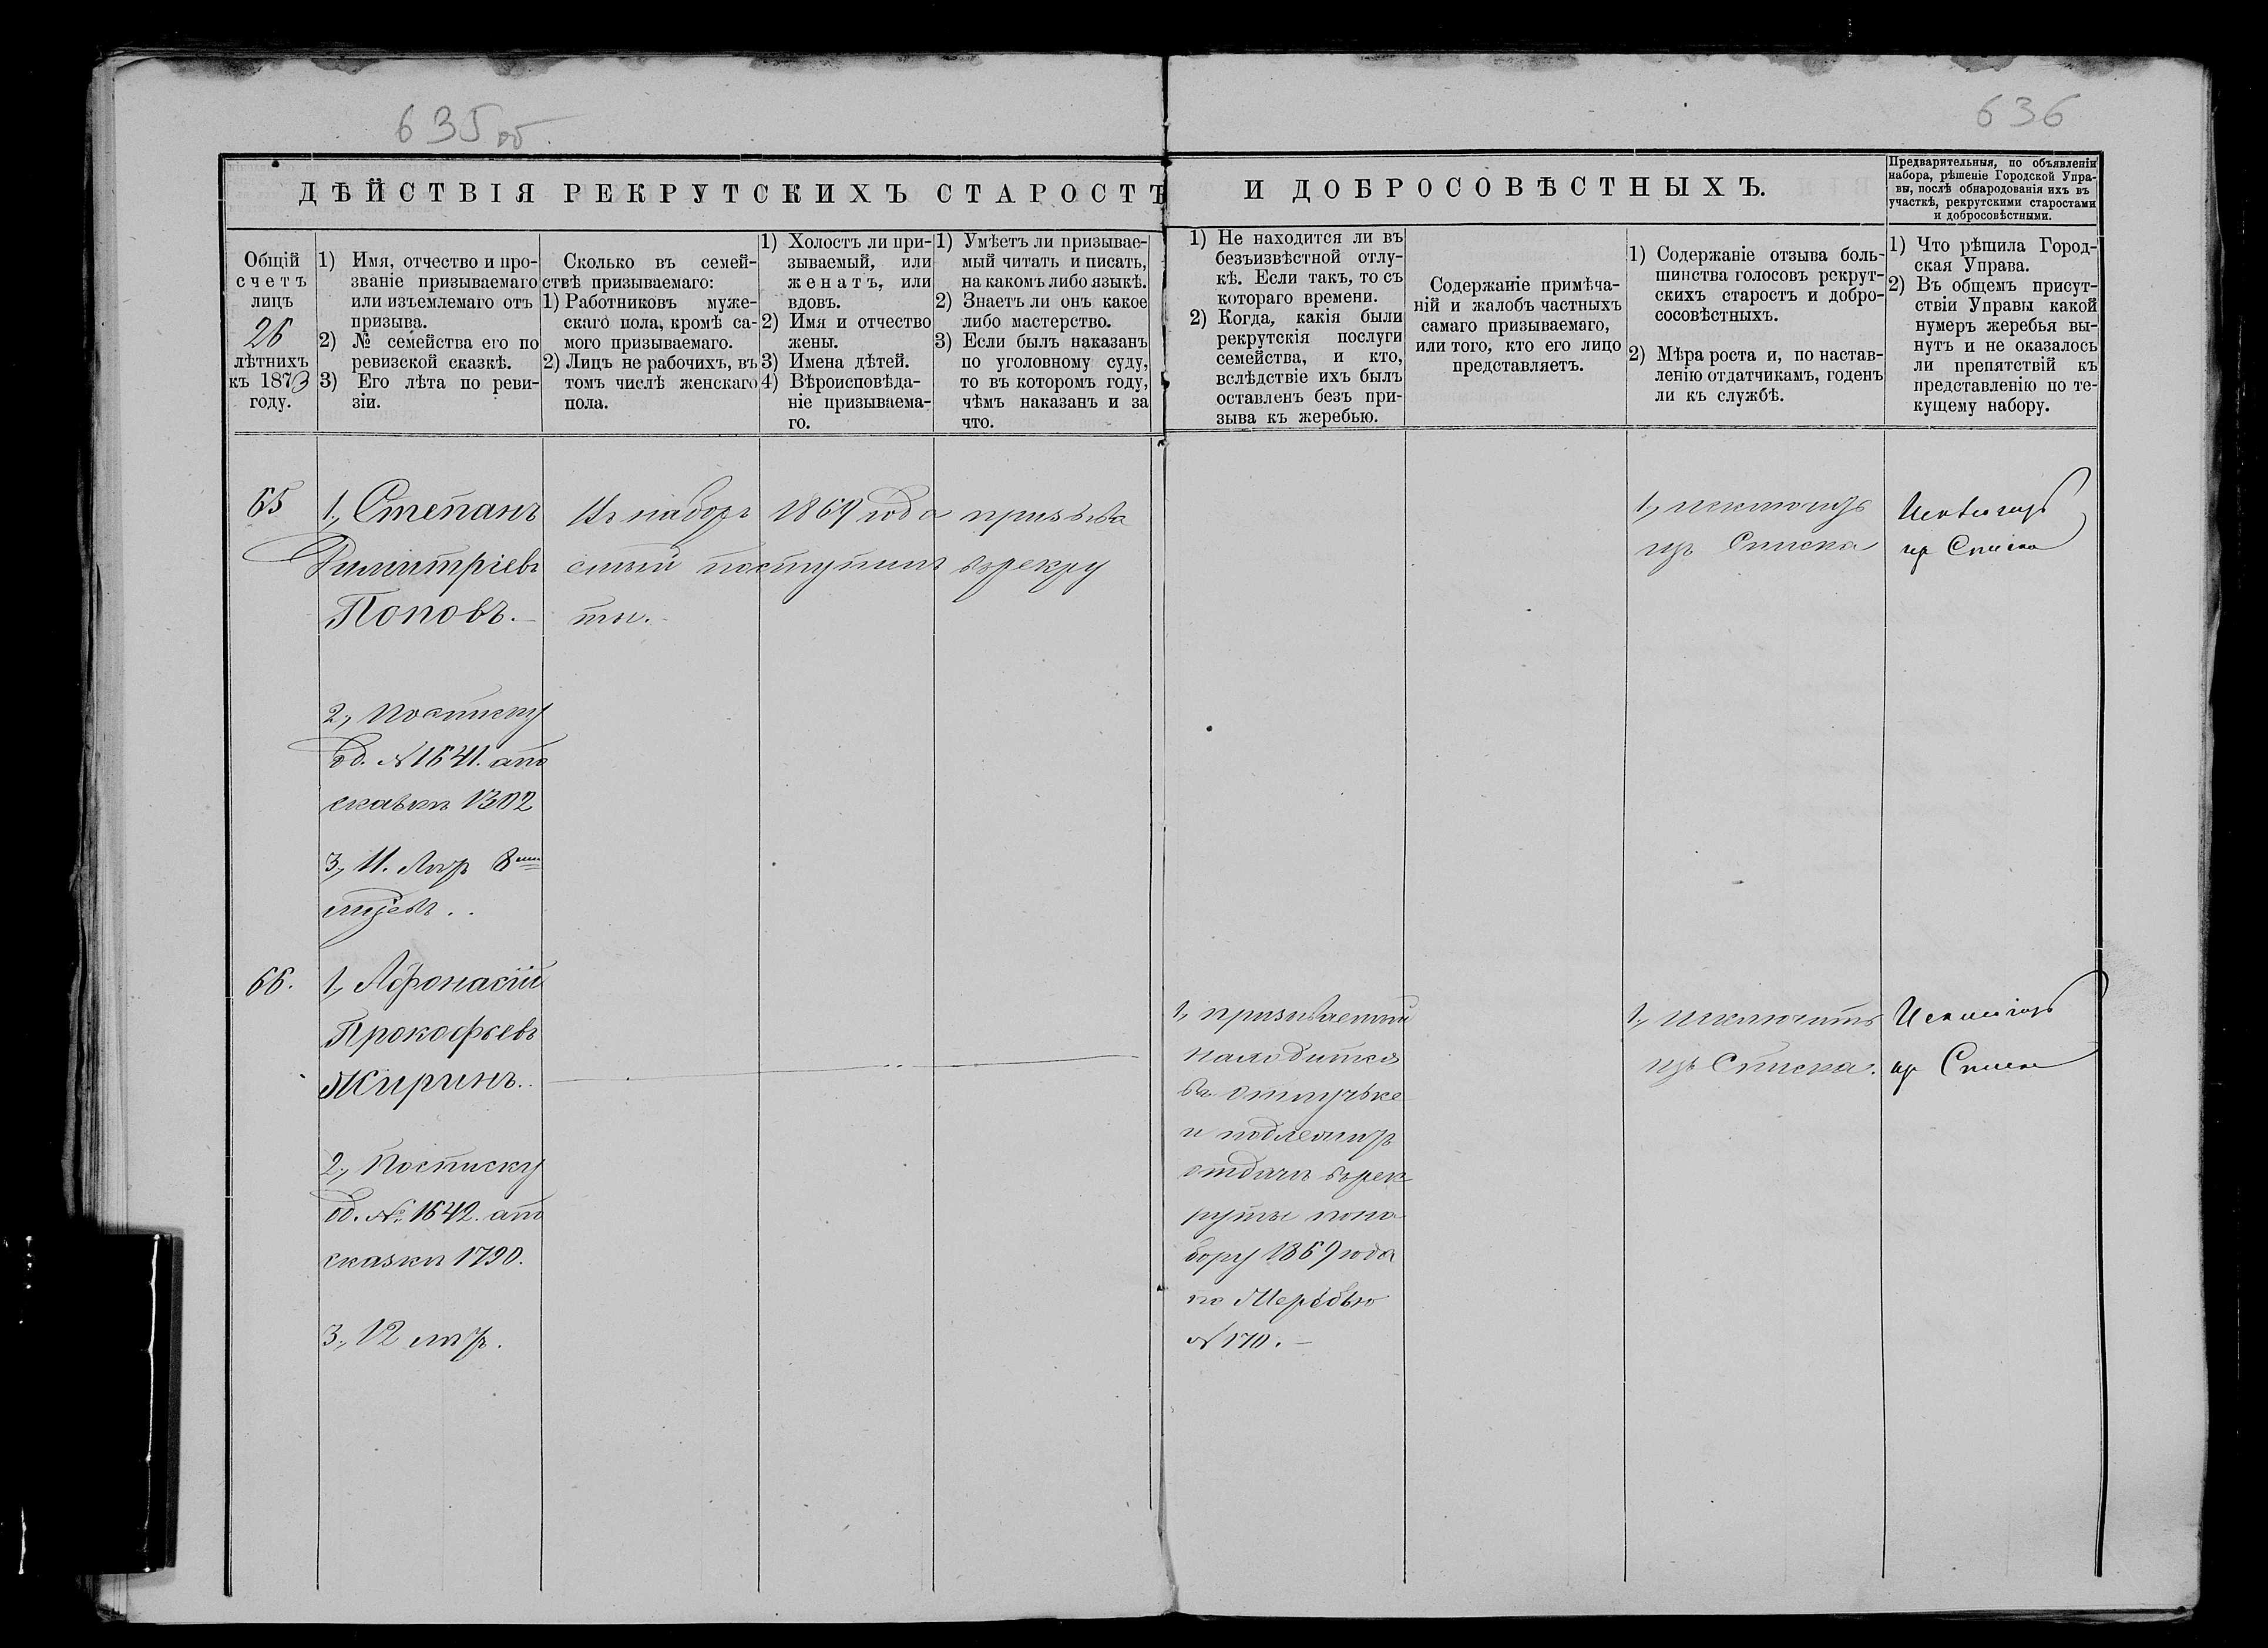 635 об.
636
ДѢЙСТВІЯ РЕКРУТСКИХЪ СТАРОСТЪ И ДОБРОСОВѢСТНЫХЪ.
Предварительныя, по объявленіи
набора, рѣшеніе Городской Упра-
вы, послѣ обнародованія ихъ въ
участкѣ, рекрутскими старостами
и добросовѣстными.
Общій
счетъ
лицъ
26
лѣтнихъ
къ 1873
году.
1) Имя, отчество и про-
званіе призываемаго
или изъемлемаго отъ
призыва.
2) № семейства его по
ревизской сказкѣ.
3) Его лѣта по реви-
зіи.
Сколько въ семей-
ствѣ призываемаго:
1) Работниковъ муже-
скаго пола, кромѣ са-
мого призываемаго.
2) Лицъ не рабочихъ, въ
томъ числѣ женскаго
пола.
1) Холостъ ли при-
зываемый, или
женатъ, или
вдовъ.
2) Имя и отчество
жены.
3) Имена дѣтей.
4) Вѣроисповѣда-
ніе призываема-
го.
1) Умѣетъ ли призывае-
мый читать и писать,
на какомъ либо языкѣ.
2) Знаетъ ли онъ какое
либо мастерство.
3) Если былъ наказанъ
по уголовному суду,
то въ которомъ году,
чѣмъ наказанъ и за
что.
1) Не находится ли въ
безъизвѣстной отлу-
кѣ. Если такъ, то съ
котораго времени.
2) Когда, какія были
рекрутскія послуги
семейства, и кто,
вслѣдствіе ихъ былъ
оставленъ безъ при-
зыва къ жеребью.
Содержаніе примѣча-
ній и жалобъ частныхъ
самаго призываемаго,
или того, кто его лицо
представляетъ.
1) Содержаніе отзыва боль-
шинства голосовъ рекрут-
скихъ старостъ и добро-
сосовѣстныхъ.
2) Мѣра роста и, по настав-
ленію отдатчикамъ, годенъ
ли къ службѣ.
1) Что рѣшила Город-
ская Управа.
2) Въ общемъ присут-
ствіи Управы какой
нумеръ жеребья вы-
нутъ и не оказалось
ли препятствій къ
представленію по те-
кущему набору.
65
1, Степанъ
Димитріевъ
Поповъ.
2, Посписку
од. № 1641. апо
сказкѣ 1302
3, 11. Лѣтъ 8ми
Въ наборъ 1869 года призыва
емый поступилъ врекру
ты.
1, исключить
изъ Списка
Исключить
изъ Списка
66.
1, Афонасій
Прокофьевъ
Жиринъ.
2, Посписку
од. №. 1642. апо
сказкѣ 1790.
3, 12 лѣтъ.
1, призываемый
находится
въ отлучьке
и подлежитъ
отдачѣ врек
руты пона
бору 1869 года
по Жеребью
№ 170.
1, исключить
изъ Списка.
Исключить
изъ Списка